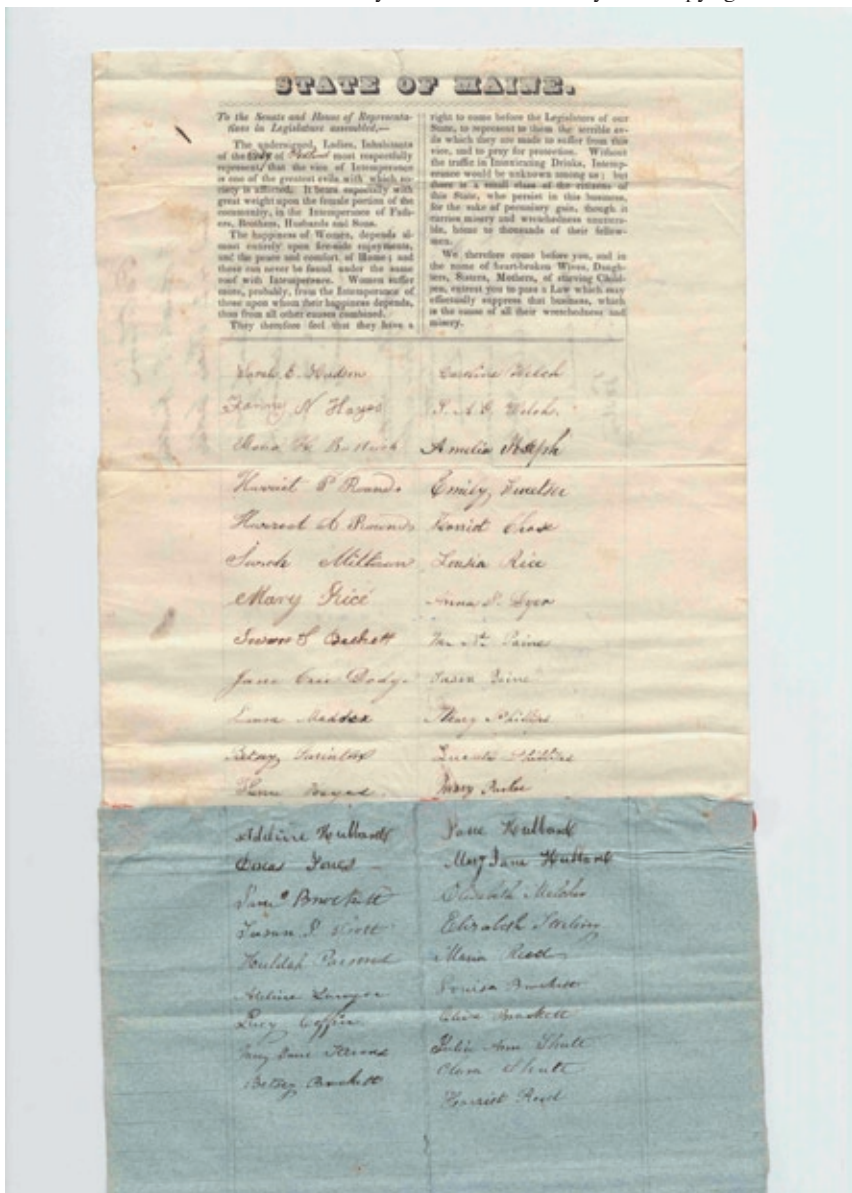 STATE OF MAINE.
To the Senate and House of Representa-
tives in Legislature assembled,—
The undersigned, Ladies, Inhabitants
of the City of Portland most respectfully
represent, that the vice of Intemperance
is one of the greatest evils with which so-
ciety is afflicted. It bears especially with
great weight upon the female portion of the
community, in the Intemperance of Fath-
ers, Brothers, Husbands and Sons.
The happiness of Women, depends al-
most entirely upon fire-side enjoyments,
and the peace and comfort of Home; and
these can never be found under the same
roof with Intemperance. Women suffer
more, probably, from the Intemperance of
those upon whom their happiness depends,
than from all other causes combined.
They therefore feel that they have a
right to come before the Legislature of our
State, to represent to them the terrible ev-
ils which they are made to suffer from this
vice, and to pray for protection. Without
the traffic in Intoxicating Drinks, Intemp-
erance would be unknown among us; but
there is a small class of the citizens of
this State, who persist in this business,
for the sake of pecuniary gain, though it
carries misery and wretchedness unuttera-
ble, home to thousands of their fellow-
men.
We therefore come before you, and in
the name of heart-broken Wives, Daugh-
ters, Sisters, Mothers, of starving Child-
ren, entreat you to pass a Law which may
effectually suppress that business, which
is the cause of all their wretchedness and
misery.
Sarah E. Hudson
Fanny N Hayes
H
Harriet P Rounds
Harriet A Rounds
Sarah Milliken
Mary Rice
Susan S Beckett
Jane Dodge
Maddox
Betsey
Caroline Welch
Welch
Amelia Joseph
Emily Sweetser
Harriet Chase
Louisa Rice
Anna S. Dyer
Paine
Mary Phillips
Phillips
Adeline Hubbard
Dorcas Jones
Brackett
Susan P Scott
Huldah Parsons
Adeline Sawyer
Lucy Coffin
Mary Jane
Betsey Brackett
Jane Hubbard
Mary Jane Hubbard
Elizabeth Melcher
Elizabeth Sterling
Maria Reed
Louisa Brackett
Olive Brackett
Julia Ann Shutt
Clara Shutt
Harriet Reed